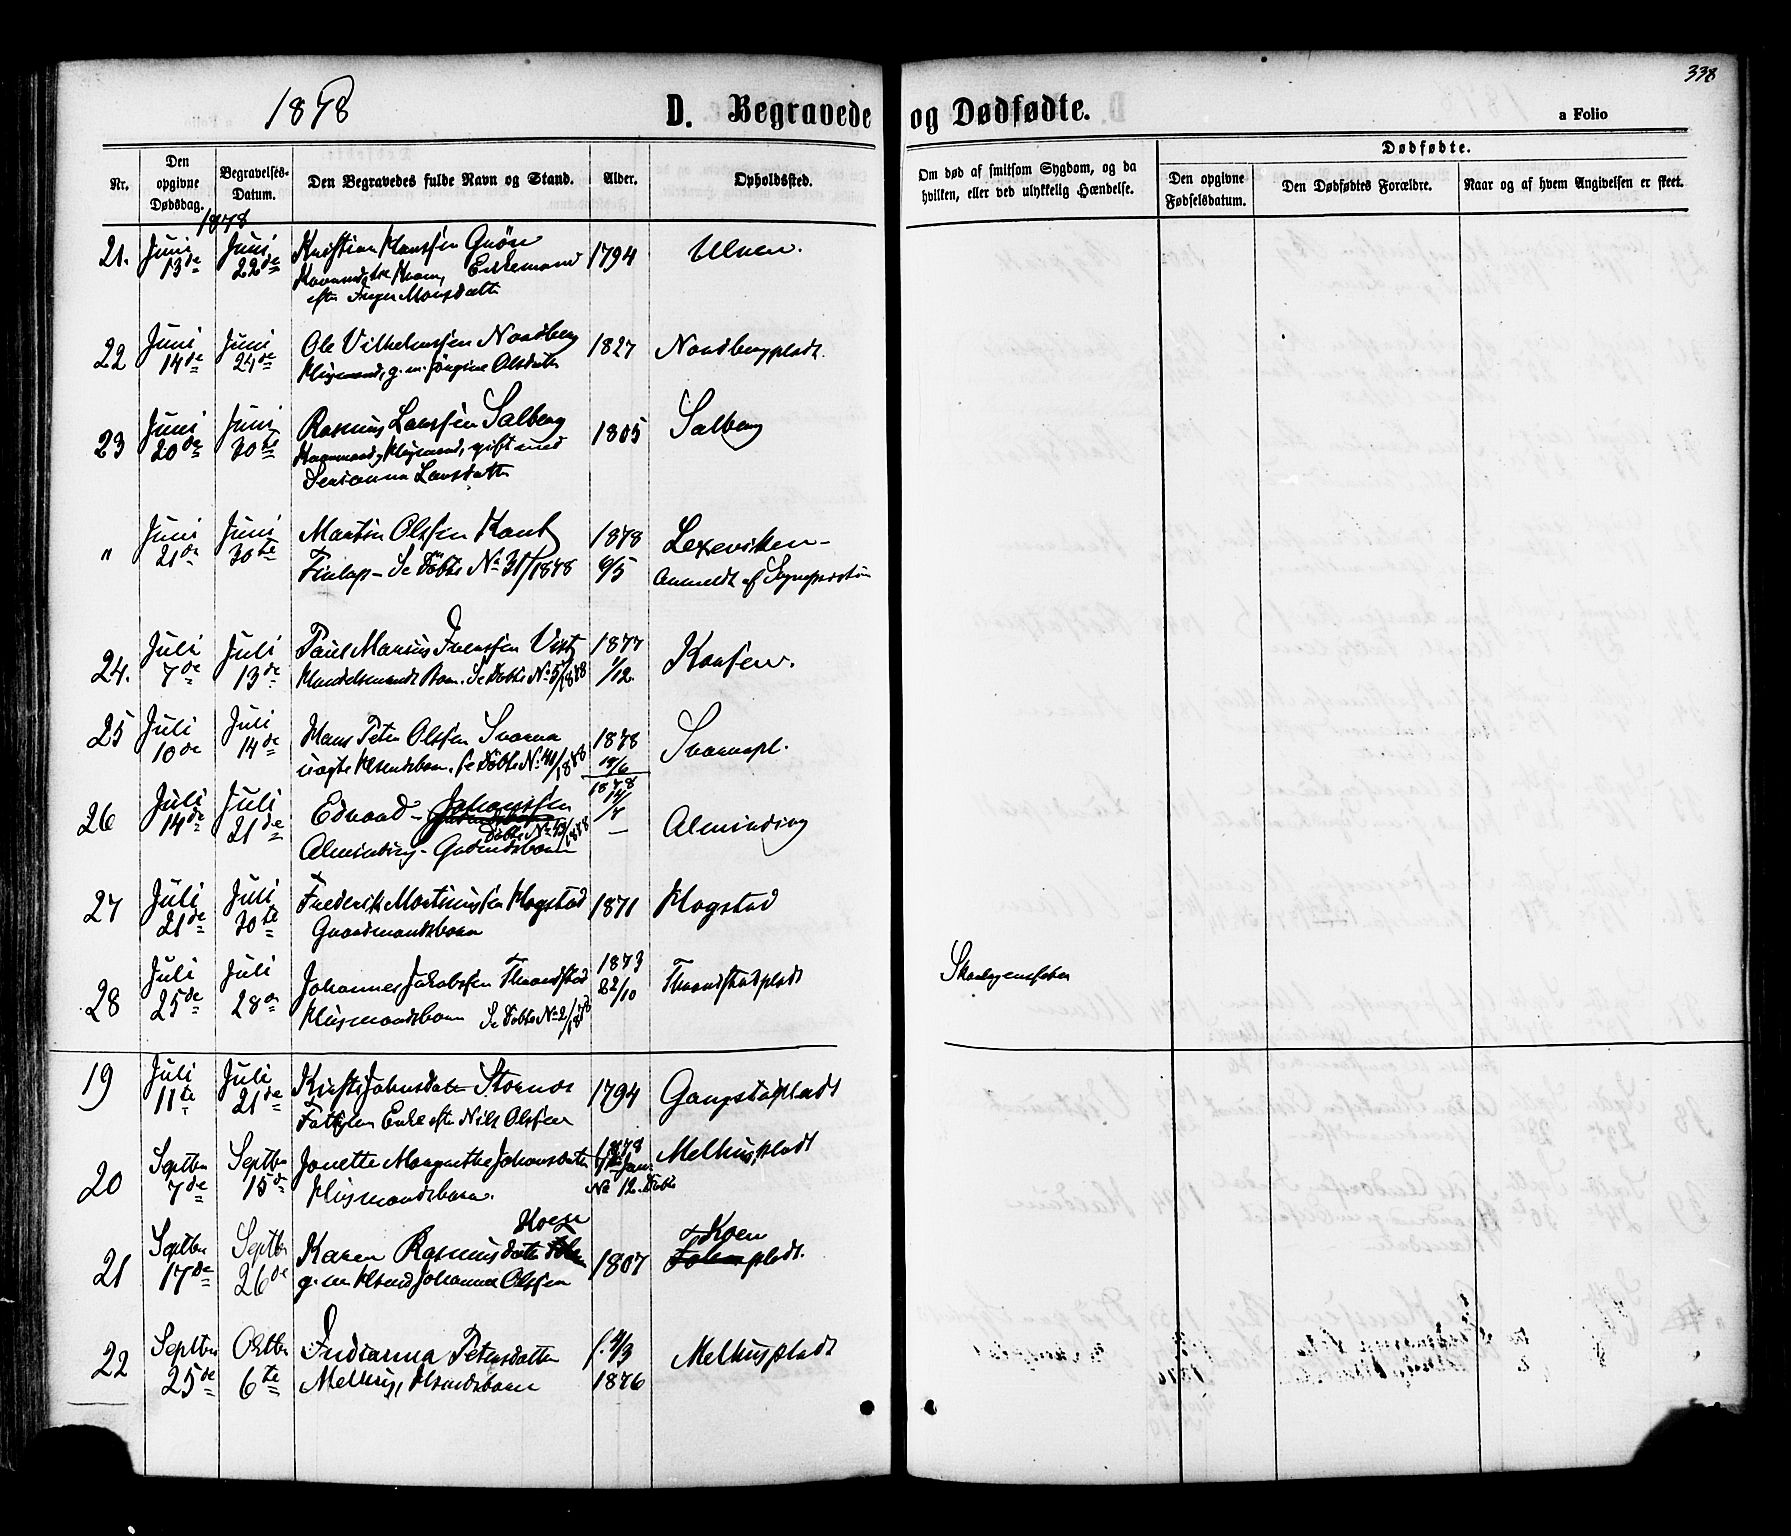 338
1878
D. Begravede og Dødfødte.
a Folio
Nr.
Den opgivne Dødsdag.
Begravelses-Datum.
Den Begravedes fulde Navn og Stand.
Alder.
Opholdssted.
Om død af smitsom Sygdom, og da hvilken, eller ved ulykkelig Hændelse.
Dødfødte.
Den opgivne Fødselsdatum.
Den Dødfødtes Forældre.
Naar og af hvem Angivelsen er skeet.
1878
21. Juni 13de Juni 22de Kristian Hanssen 1794 Ulven.
Enkemand
efter Inger Monsdatter
22 Juni 14de Juni 24de Ole Vilhelmssen Nordberg 1827 Nordbergplads.
Husmand, g. m. Jørgine Olsdatter
23 Juni 20de Juni 30te Rasmus Larssen Salberg 1805 Salberg
Husmand, gift med
Larsdatter
" Juni 21de Juni 30te Martin Olssen 1878 Lexeviken
Se Døbte No 31/1878 6/5 Anmeldt af Sognepresten
24. Juli 7de Juli 13de Paul Marius Vist 1877 Korsen.
Handelsmands Barn. Se Døbte No 5/1878 1/12.
25 Juli 10de Juli 14de Hans Peter Olssen Svarva 1878 Svarvapl.
uægte Barn. Se Døbte No 41/1878 19/6
26 Juli 14de Juli 21de Edvard Johanssen 1878 14/7 Alminding
Døbte No 43/1878
Alminding
27 Juli 21de Juli 30te Frederik Martinussen Hogstad 1871 Hogstad
Gaardmandsbarn
28 Juli 25de Juli 28de Johannes Jakobssen Throndstad 1873 Throndstadplads Skarlagensfeber
Husmandsbarn Se Døbte No 2/1878 22/10
19 Juli 11te Juli 21de Kirsti Johnsdatter Stornes 1794 Gangstadplads
Enke efter Nils Olssen
20 Septbr 7de Septbr 15de Jonette Margrethe Johansdatter 1878 Melhusplads
Husmandsbarn. No 12. Døbte
21 Septbr 17de Septbr 26de Karen Rasmusdatter 1807
g. m. Johannes Olssen
22 Septbr 25de Octbr 6te Petersdatter f. 4/3 Melhusplads
Melhus, 1876